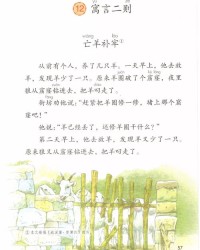 12 寓言二则
wáng bǔ láo
亡羊补牢①
从前有个人，养了几只羊。一天早上，他去放
羊，发现羊少了一只。原来羊圈破了个窟窿，夜里
狼从窟窿钻进去，把羊叼走了。
街坊劝他说：“赶紧把羊圈修一修，堵上那个窟
窿吧！”
他说：“羊已经丢了，还修羊圈干什么？”
第二天早上，他去放羊，发现羊又少了一只。
原来狼又从窟窿钻进去，把羊叼走了。
57